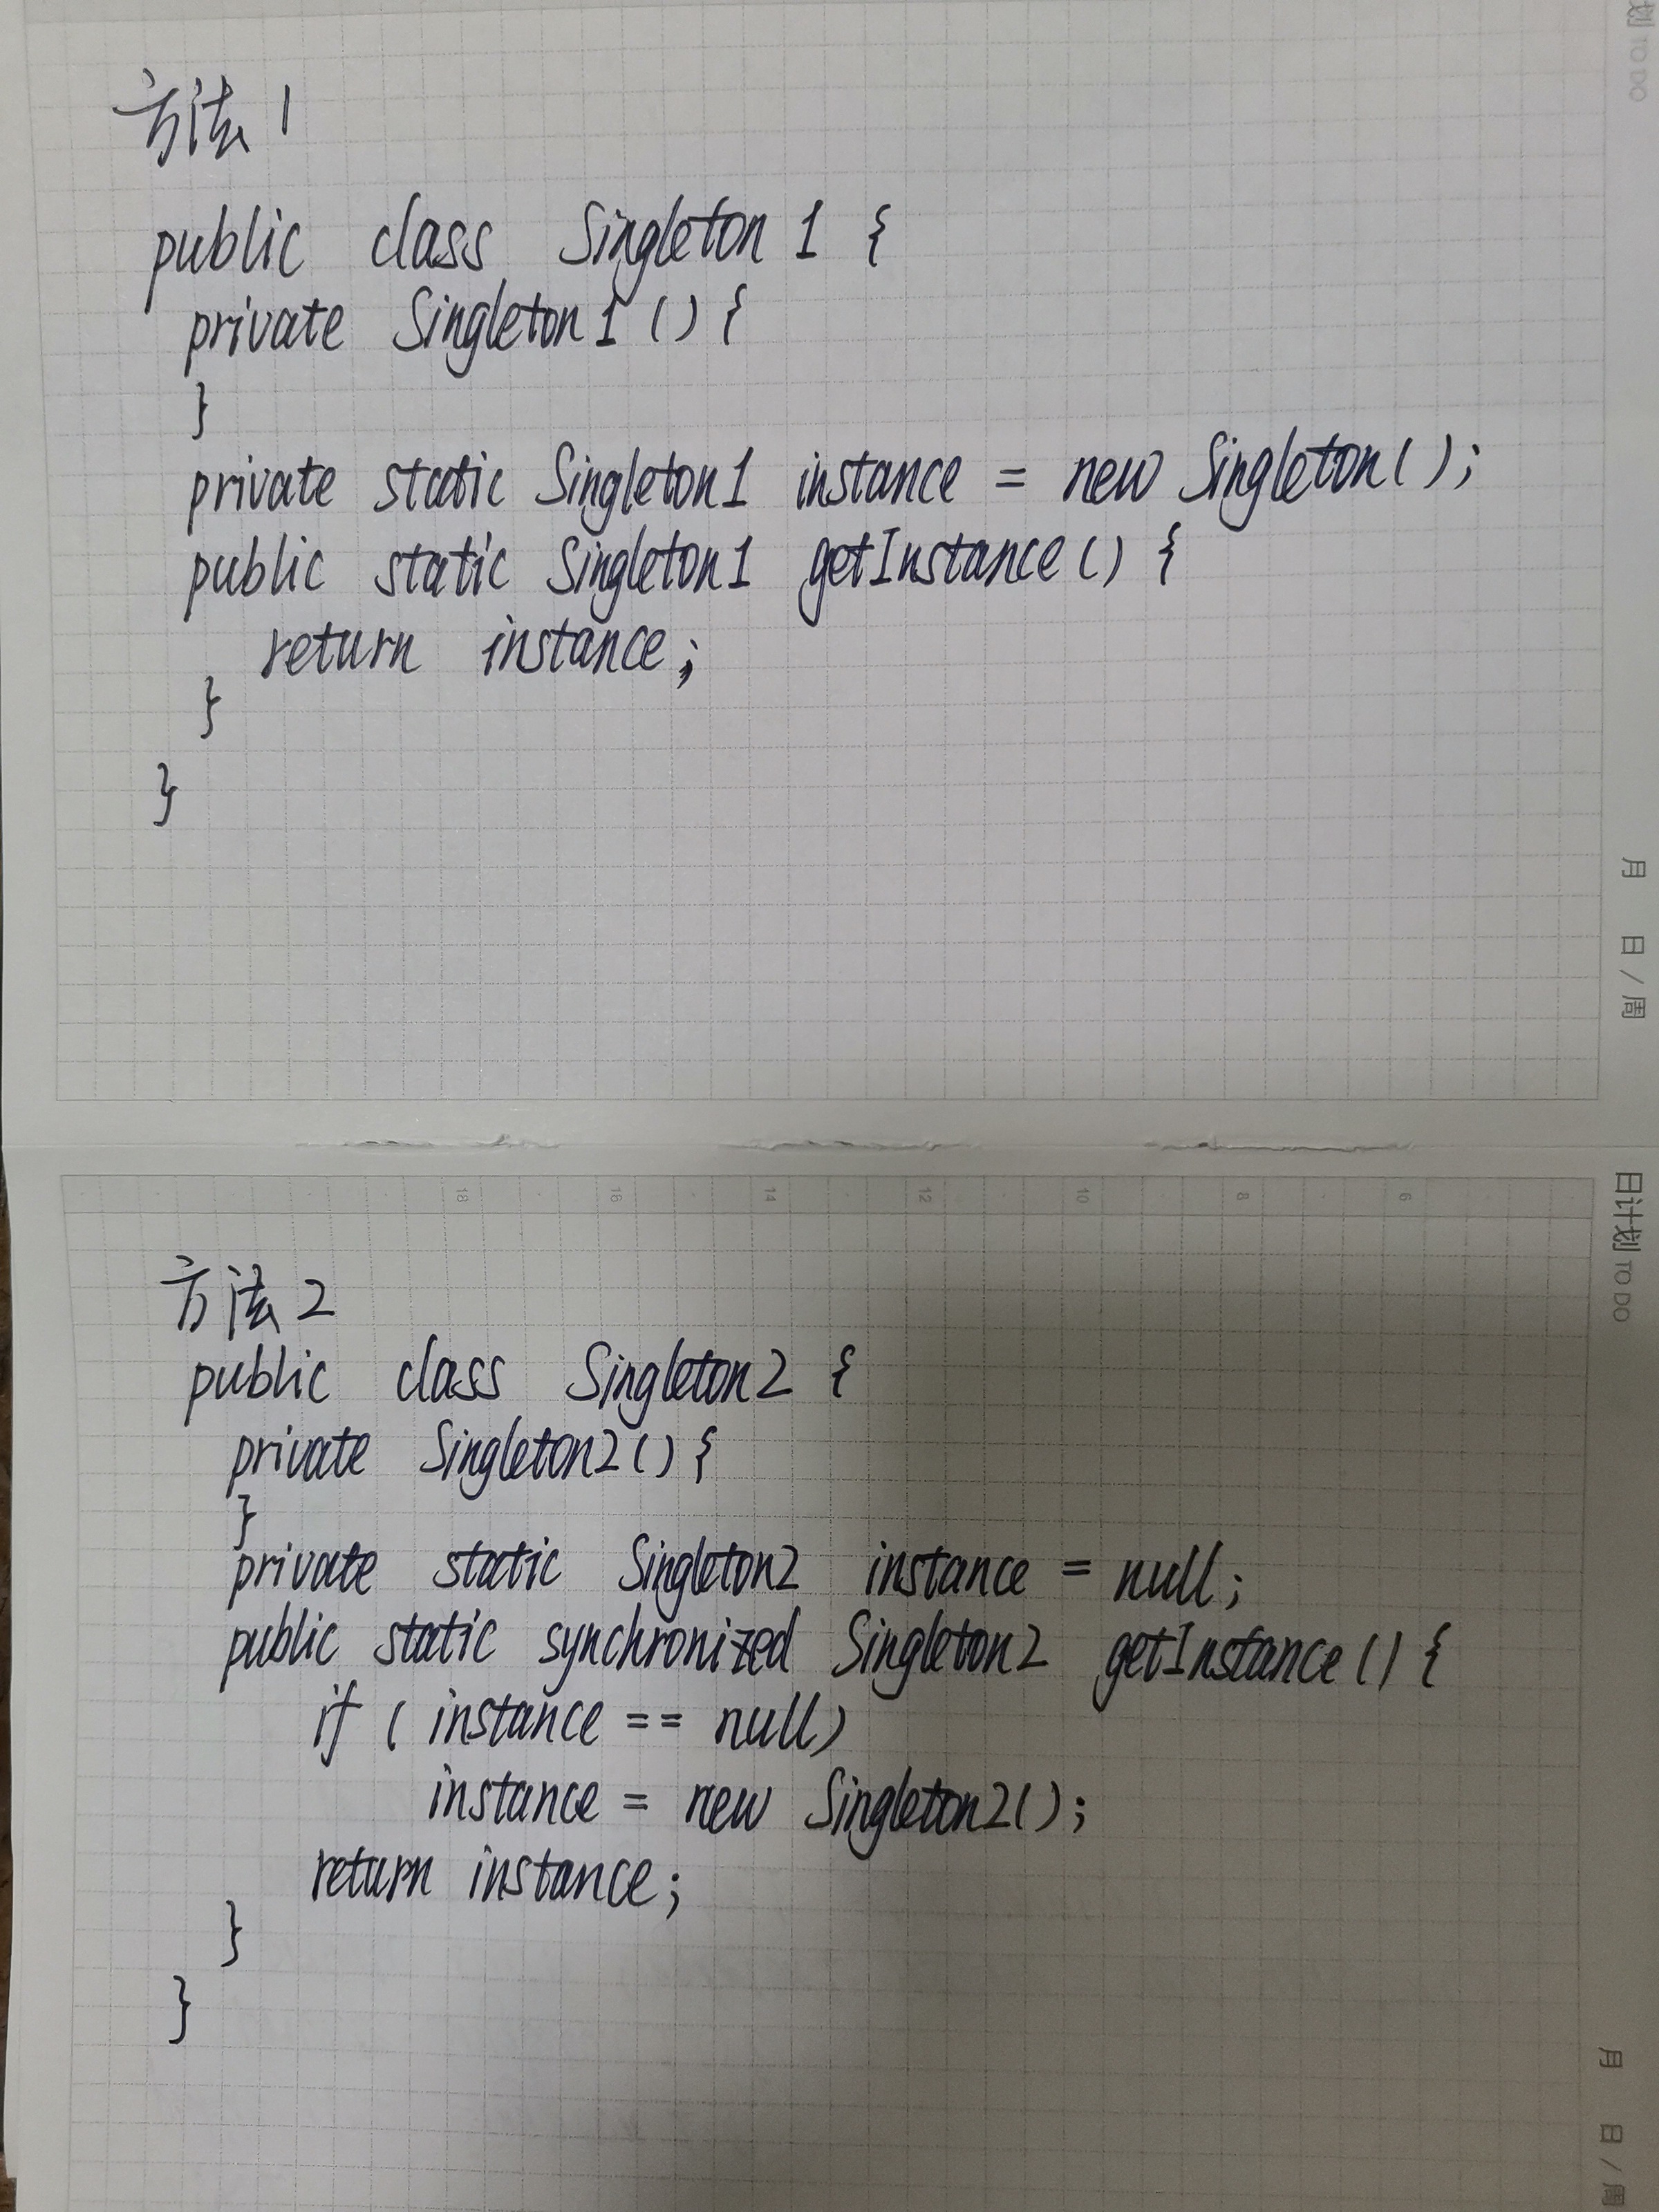 划 TO DO
方法 1
public class Singleton 1 {
private Singleton1 () {
}
private static Singleton1 instance = new Singleton();
public static Singleton1 getInstance() {
return instance;
}
}
月 日/周
18 16 14 12 10 8 6
日计划 TO DO
方法 2
public class Singleton2 {
private Singleton2() {
}
private static Singleton2 instance = null;
public static synchronized Singleton2 getInstance() {
if ( instance == null)
instance = new Singleton2();
return instance;
}
}
月 日/周